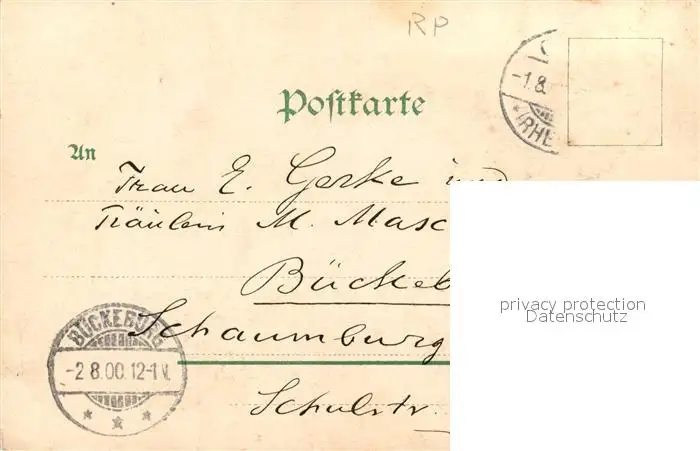 RP
-1.8.
(RHE
Postkarte
An
Frau E. Gerke und
Fräulein M. Masc
Bückeb
Schaumburg
Schulstr.
BÜCKEBURG
-2 8.00.12-1 N.
privacy protection
Datenschutz